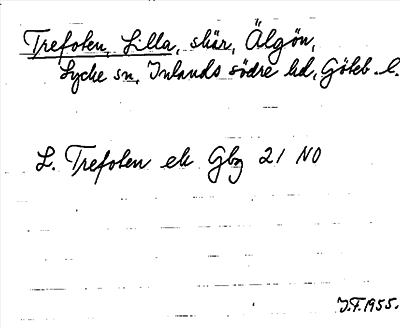 Trefoten, Lilla, skär, Älgön,
Lycke sn, Inlands södre hd, Göteb. l.
L. Trefoten ek Gbg 21 NO
J.F. 1955.